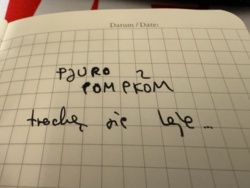 Datum / Date:
PIURO Z
POMPKOM
trochę się leje...